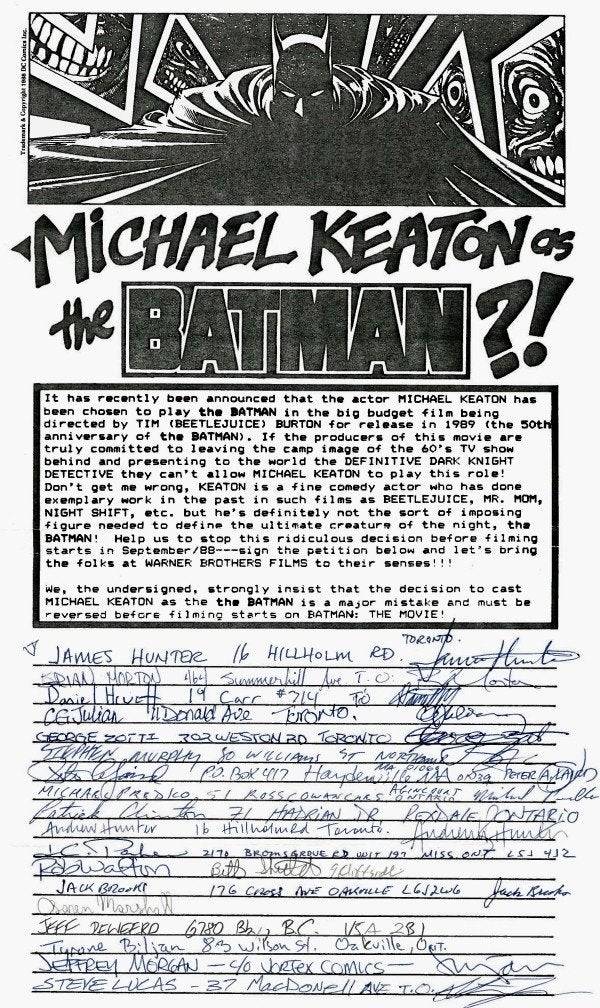 Trademark & Copyright 1988 DC Comics Inc.
MICHAEL KEATON as
the BATMAN ?!
It has recently been announced that the actor MICHAEL KEATON has
been chosen to play the BATMAN in the big budget film being
directed by TIM (BEETLEJUICE) BURTON for release in 1989 (the 50th
anniversary of the BATMAN). If the producers of this movie are
truly committed to leaving the camp image of the 60's TV show
behind and presenting to the world the DEFINITIVE DARK KNIGHT
DETECTIVE they can't allow MICHAEL KEATON to play this role!
Don't get me wrong, KEATON is a fine comedy actor who has done
exemplary work in the past in such films as BEETLEJUICE, MR. MOM,
NIGHT SHIFT, etc. but he's definitely not the sort of imposing
figure needed to define the ultimate creature of the night, the
BATMAN! Help us to stop this ridiculous decision before filming
starts in September/88---sign the petition below and let's bring
the folks at WARNER BROTHERS FILMS to their senses!!!
We, the undersigned, strongly insist that the decision to cast
MICHAEL KEATON as the the BATMAN is a major mistake and must be
reversed before filming starts on BATMAN: THE MOVIE!
JAMES HUNTER 16 HILLHOLM RD. TORONTO. James Hunter
BRIAN MORTON Summerhill Ave T.O.
Daniel 19 Carr #714 TO
CG Julian 11 Donald Ave TORONTO.
GEORGE ZOTTI 302 WESTON RD TORONTO
STEPHEN MURPHY 30 WILLIAMS ST
P.O. Box 417 Haydenville MA 01039 PETER A. LAIRD
MICHAEL 51 ROSSCOWAN CRES AGINCOURT ONTARIO
Patrick 71 HADRIAN DR. REXDALE, ONTARIO
Andrew Hunter 16 Hillholm Rd Toronto. Andrew Hunter
J.C. 2170 BROMSGROVE RD UNIT 197 MISS. ONT L5J 4J2
Rob Walton Beth
JACK BROOKS 176 CROSS AVE OAKVILLE L6J2W6 Jack Brooks
Marshall
JEFF 6780 B.C. V5A 2B1
Tyrone Biljan 83 Wilson St. Oakville, Ont.
JEFFREY MORGAN - C/O VORTEX COMICS -
STEVE LUCAS - 37 MACDONELL AVE T.O.